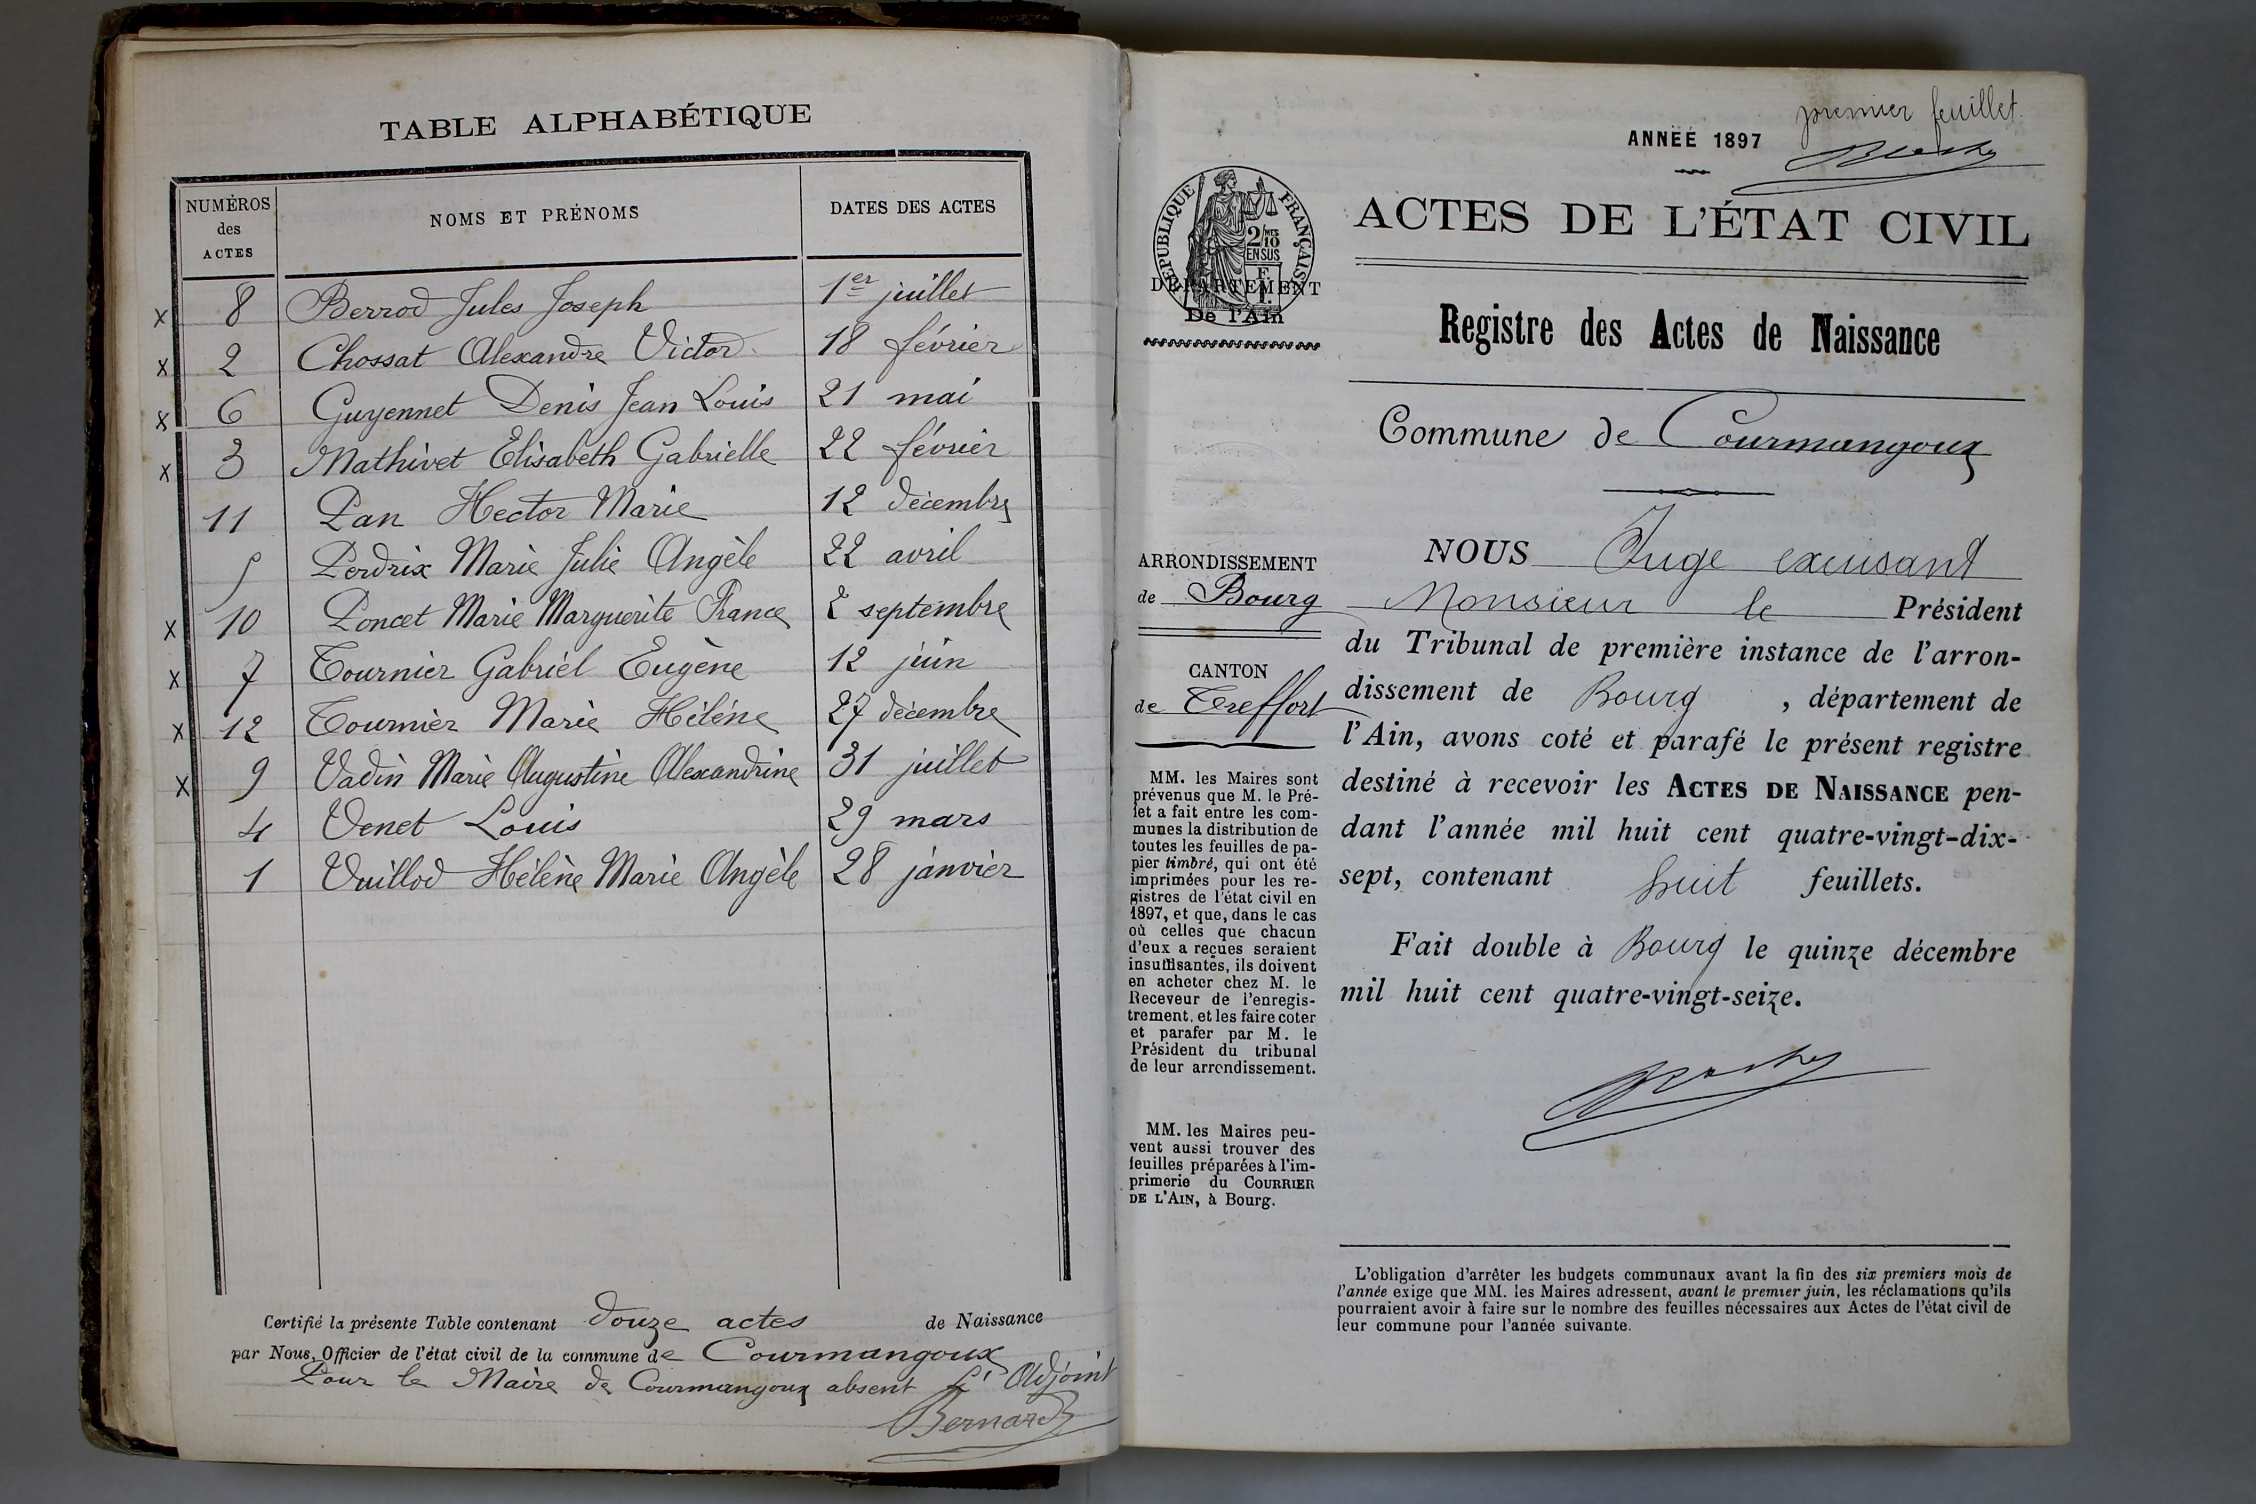 TABLE ALPHABÉTIQUE
NUMÉROS des ACTES NOMS ET PRÉNOMS DATES DES ACTES
x 8 Berrod Jules Joseph 1er juillet
x 2 Chossat Alexandre Victor 18 février
x 6 Guyennet Denis Jean Louis 21 mai
x 3 Mathivet Elisabeth Gabrielle 22 février
11 Pan Hector Marie 12 décembre
5 Perdrix Marie Julie Angèle 22 avril
x 10 Poncet Marie Marguerite France 2 septembre
x 7 Tournier Gabriel Eugène 12 juin
x 12 Tournier Marie Hélène 27 décembre
x 9 Vadin Marie Augustine Alexandrine 31 juillet
4 Venet Louis 29 mars
1 Vuillod Hélène Marie Angèle 28 janvier
Certifié la présente Table contenant douze actes de Naissance
par Nous, Officier de l'état civil de la commune de Courmangoux
Pour le Maire de Courmangoux absent L'Adjoint
Bernard
premier feuillet
ANNÉE 1897
RÉPUBLIQUE FRANÇAISE
2/10MES
EN SUS
ACTES DE L'ÉTAT CIVIL
DÉPARTEMENT
De l'Ain
Registre des Actes de Naissance
Commune de Courmangoux
ARRONDISSEMENT
de Bourg
CANTON
de Treffort
MM. les Maires sont
prévenus que M. le Pré-
fet a fait entre les com-
munes la distribution de
toutes les feuilles de pa-
pier timbré, qui ont été
imprimées pour les re-
gistres de l'état civil en
1897, et que, dans le cas
où celles que chacun
d'eux a reçues seraient
insuffisantes, ils doivent
en acheter chez M. le
Receveur de l'enregis-
trement, et les faire coter
et parafer par M. le
Président du tribunal
de leur arrondissement.
MM. les Maires peu-
vent aussi trouver des
feuilles préparées à l'im-
primerie du COURRIER
DE L'AIN, à Bourg.
NOUS Juge excusant
Monsieur le Président
du Tribunal de première instance de l'arron-
dissement de Bourg , département de
l'Ain, avons coté et parafé le présent registre
destiné à recevoir les ACTES DE NAISSANCE pen-
dant l'année mil huit cent quatre-vingt-dix-
sept, contenant huit feuillets.
Fait double à Bourg le quinze décembre
mil huit cent quatre-vingt-seize.
L'obligation d'arrêter les budgets communaux avant la fin des six premiers mois de
l'année exige que MM. les Maires adressent, avant le premier juin, les réclamations qu'ils
pourraient avoir à faire sur le nombre des feuilles nécessaires aux Actes de l'état civil de
leur commune pour l'année suivante.